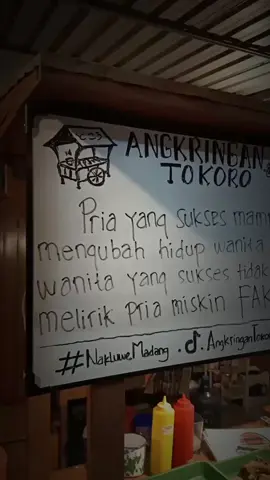 ANGKRINGAN
TOKORO
Pria yang sukses
mengubah hidup wanita
wanita yang sukses tidak
melirik pria miskin
#NakLuweMadang .